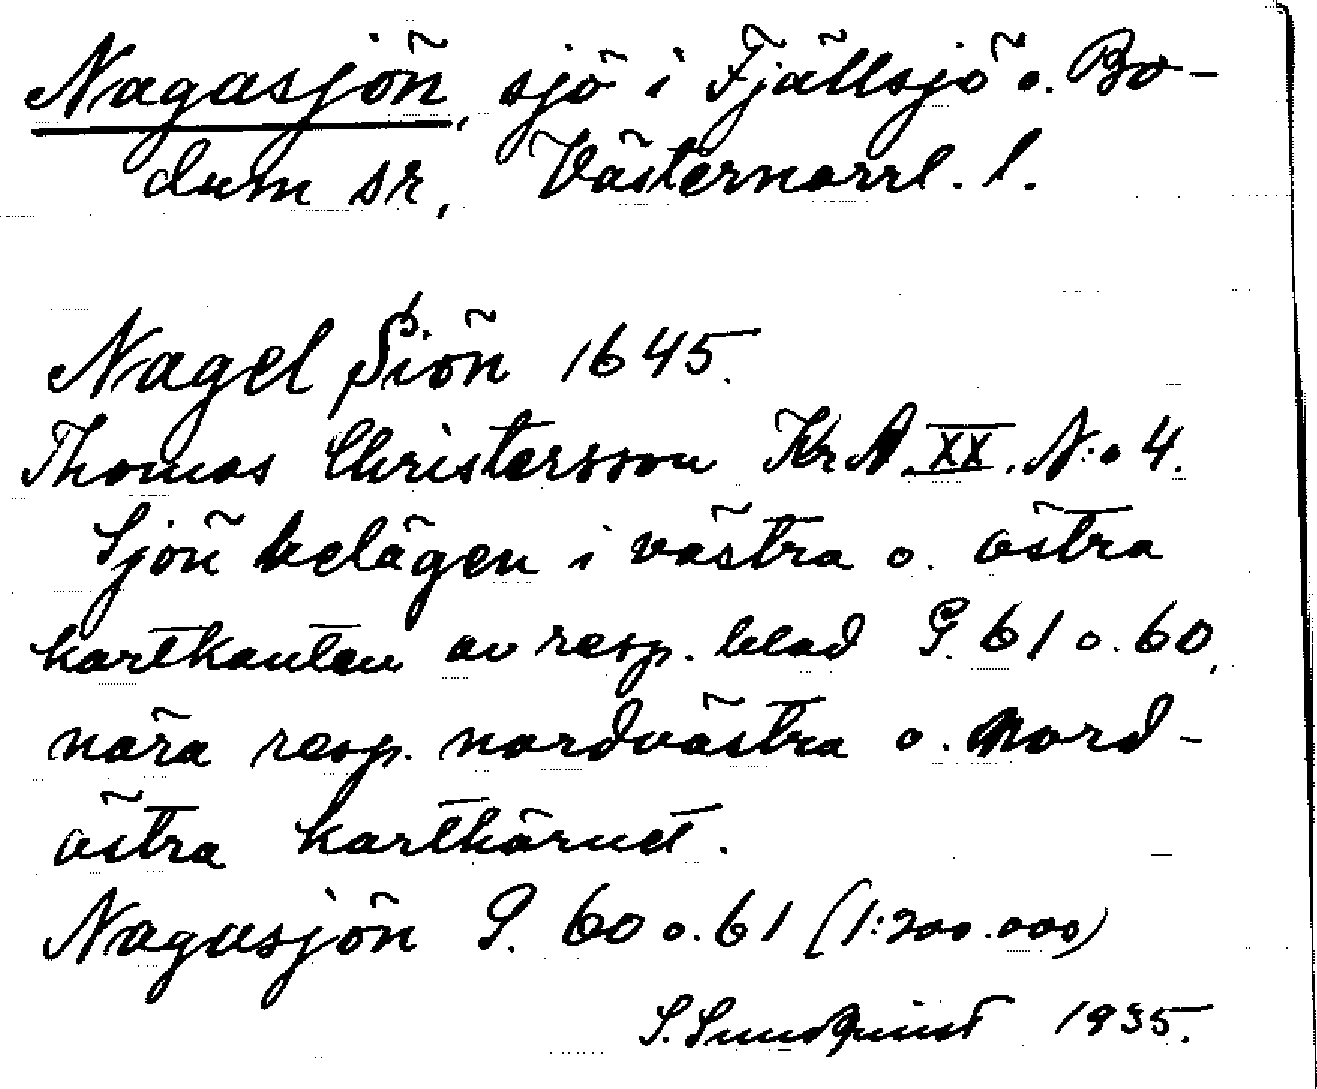 Nagasjön, sjö i Fjällsjö o. Bo-
dum sr, Västernorrl. l.
Nagel Siön 1645.
Thomas Christersson Kr A. XX. N:o 4.
Sjön belägen i västra o. östra
kartkanten av resp. blad G. 61 o. 60,
nära resp. nordvästra o. nord-
östra karthörnet.
Nagasjön G. 60 o. 61 (1:200.000)
S. Sundquist 1935.